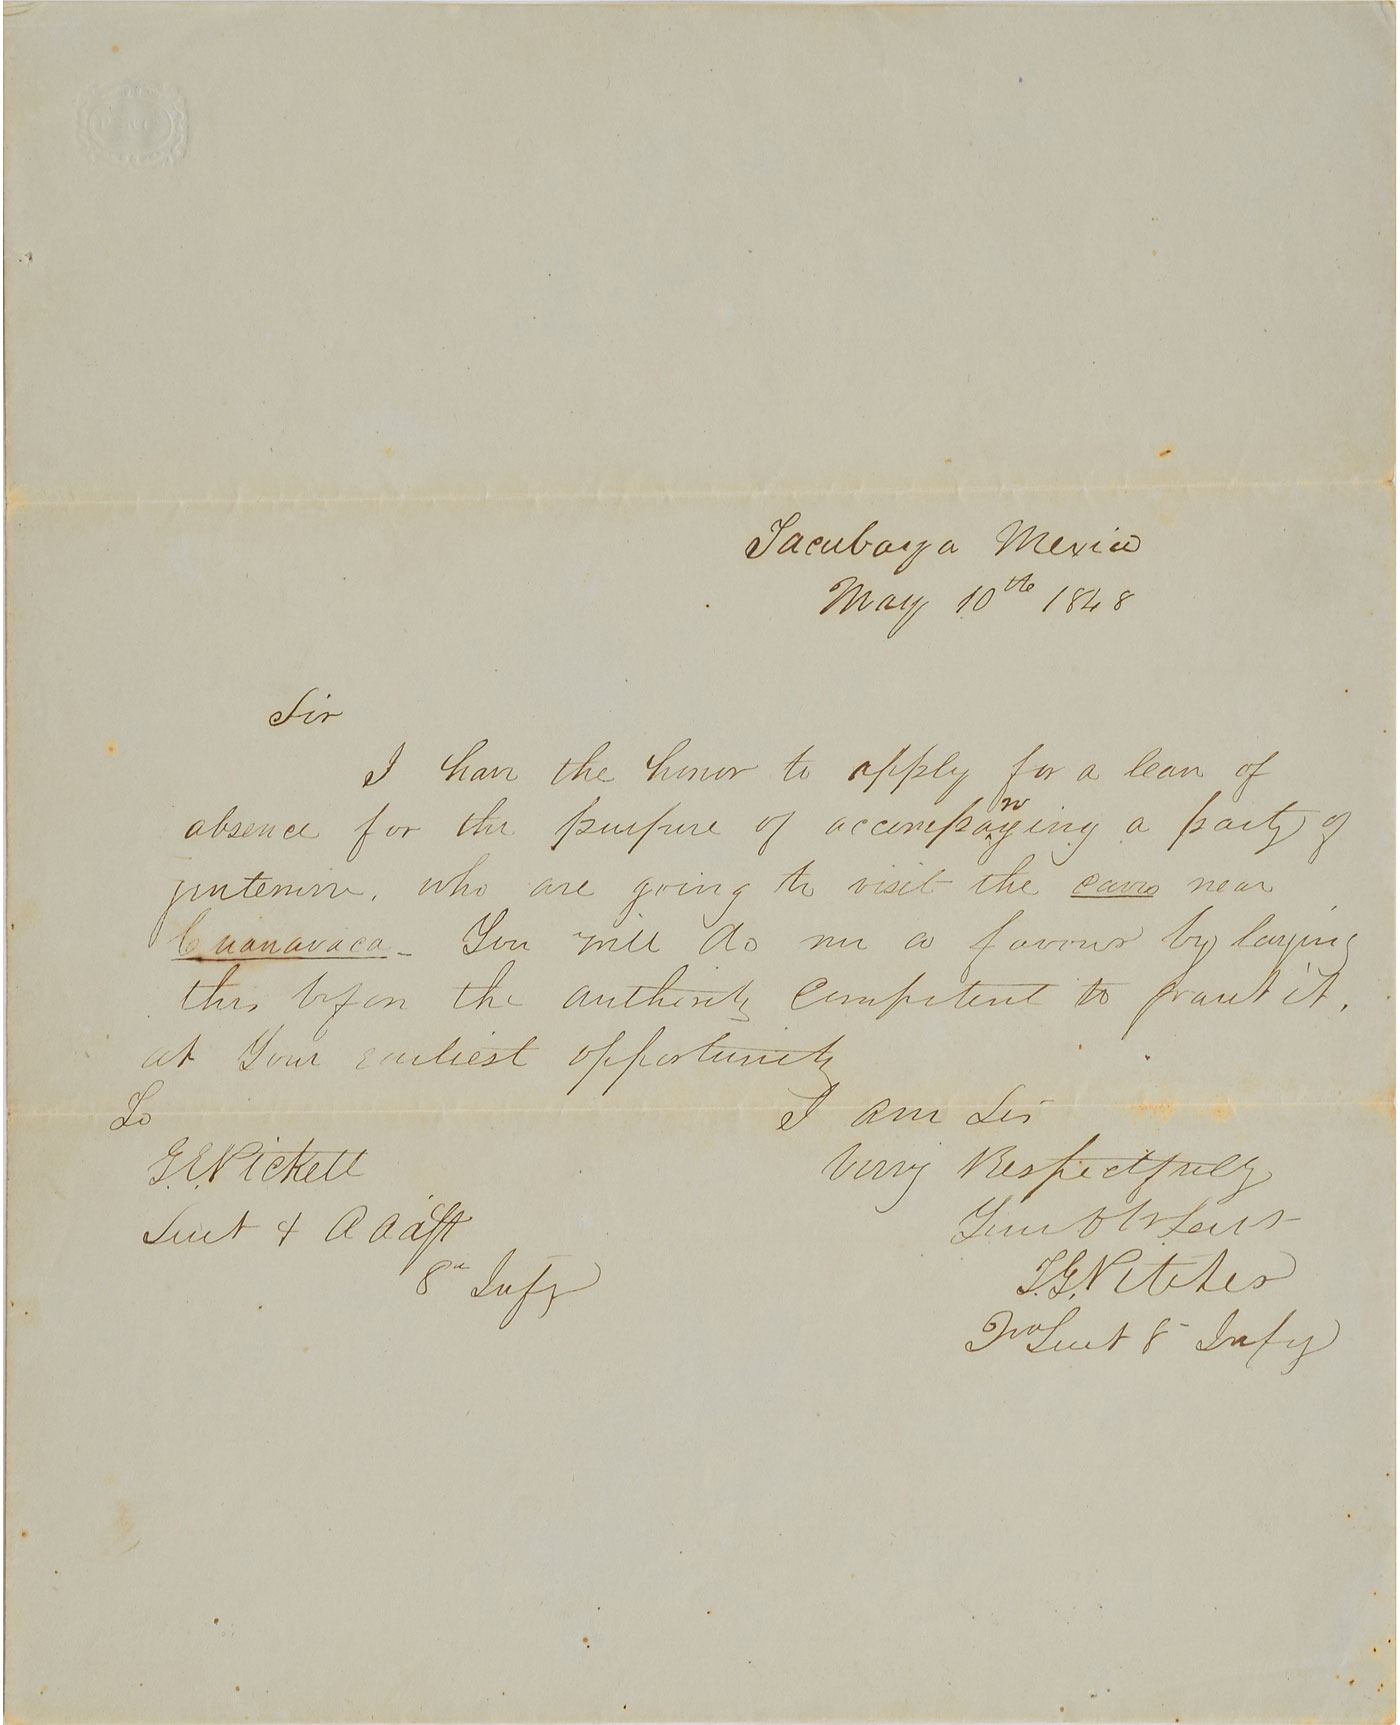 Tacubaya Mexico
May 10th 1848
Sir
I have the honor to apply for a leave of
absence for the purpose of accompanying a party of
gentemen, who are going to visit the cave near
Cuanavaca - You will do me a favour by laying
this before the authority competent to grant it,
at Your earliest opportunity
To
I am Sir
G.E. Pickett
Very Respectfully
Lieut & A A adjt
Your Obt Servt
8th Infy
T.G. Pitcher
Lieut 8th Infy